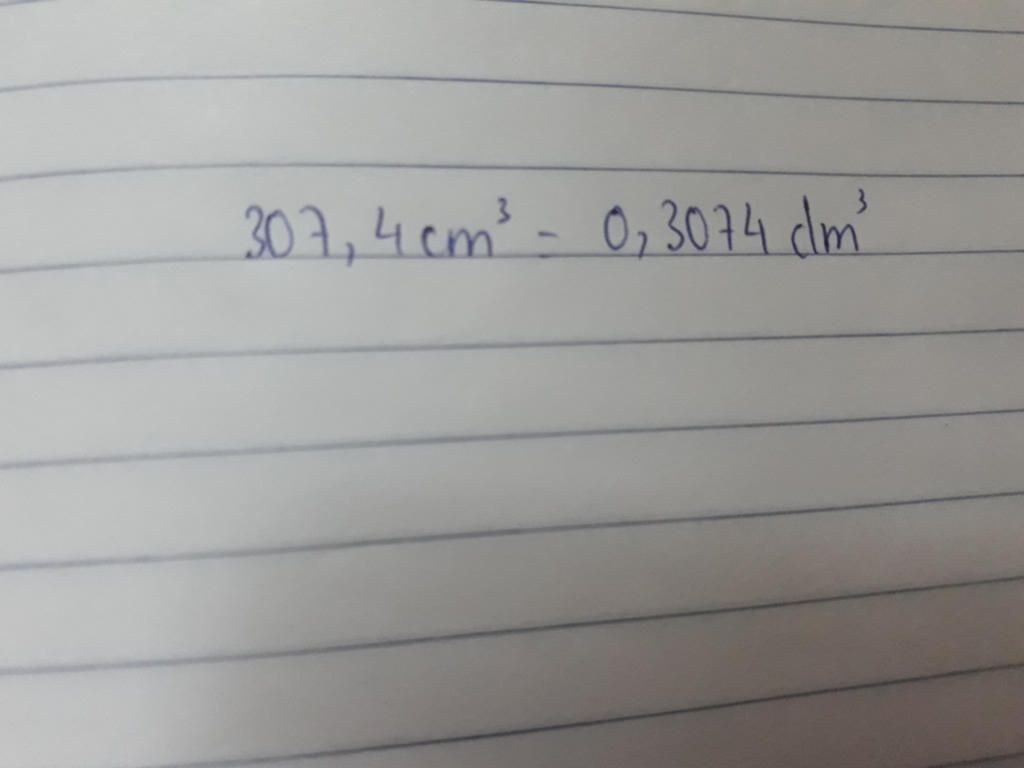 307,4 cm³ = 0,3074 dm³